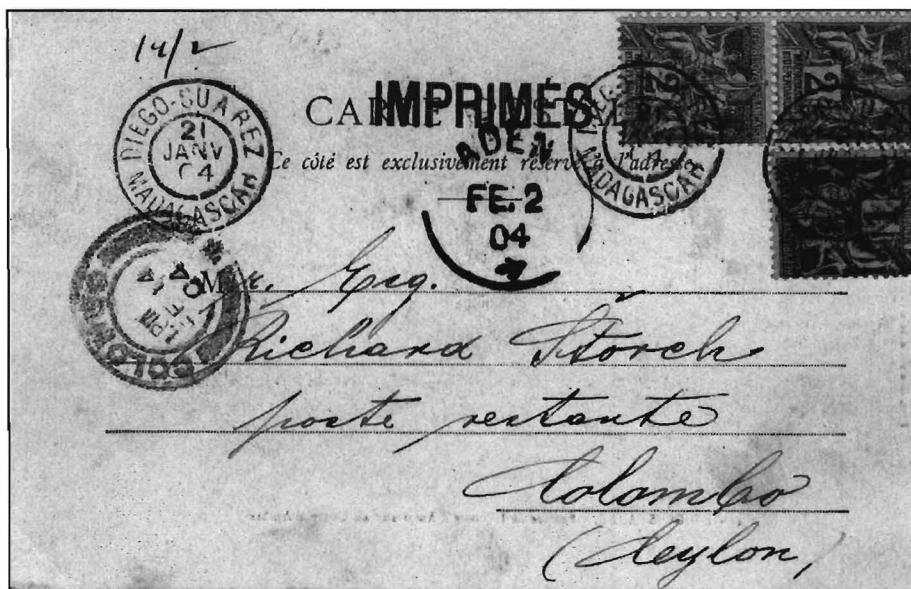 14/2
DIEGO-SUAREZ
21
JANV
04
MADAGASCAR
IMPRIMÉS
CARTE
Ce côté est exclusivement réservé à l'adresse
ADEN
FE. 2
04
MADAGASCAR
2
2
1
COLOMBO
14
04
Mr. Esq.
Richard Storch
poste restante
Colombo
(Ceylon)